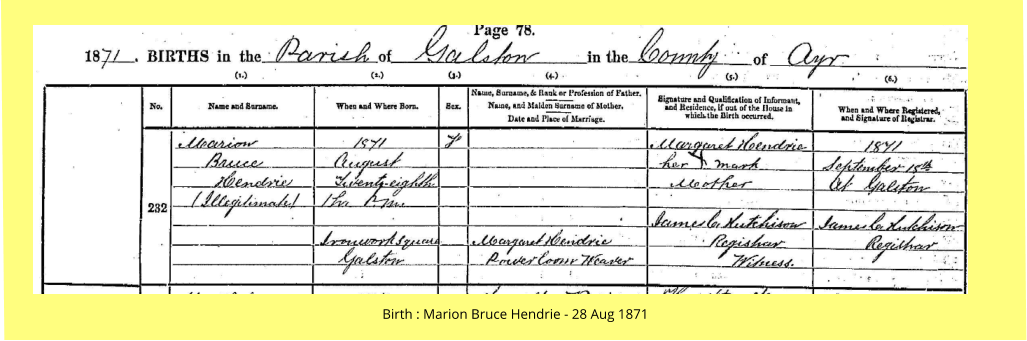 Page 78.
1871. BIRTHS in the Parish of Galston in the County of Ayr
(1.) (2.) (3.) (4.) (5.) (6.)
No.
Name and Surname.
When and Where Born.
Sex.
Name, Surname, & Rank or Profession of Father.
Name, and Maiden Surname of Mother.
Date and Place of Marriage.
Signature and Qualification of Informant,
and Residence, if out of the House in
which the Birth occurred.
When and Where Registered,
and Signature of Registrar.
232
Marion
Bruce
Hendrie
(Illegitimate)
1871
August
Twenty-eighth
1h. P.M.
Ironwork Square
Galston
F
Margaret Hendrie
Power loom Weaver
Margaret Hendrie
her X mark
Mother
James C. Hutchison
Registrar
Witness.
1871
September 15th
At Galston
James C. Hutchison
Registrar
Birth : Marion Bruce Hendrie - 28 Aug 1871